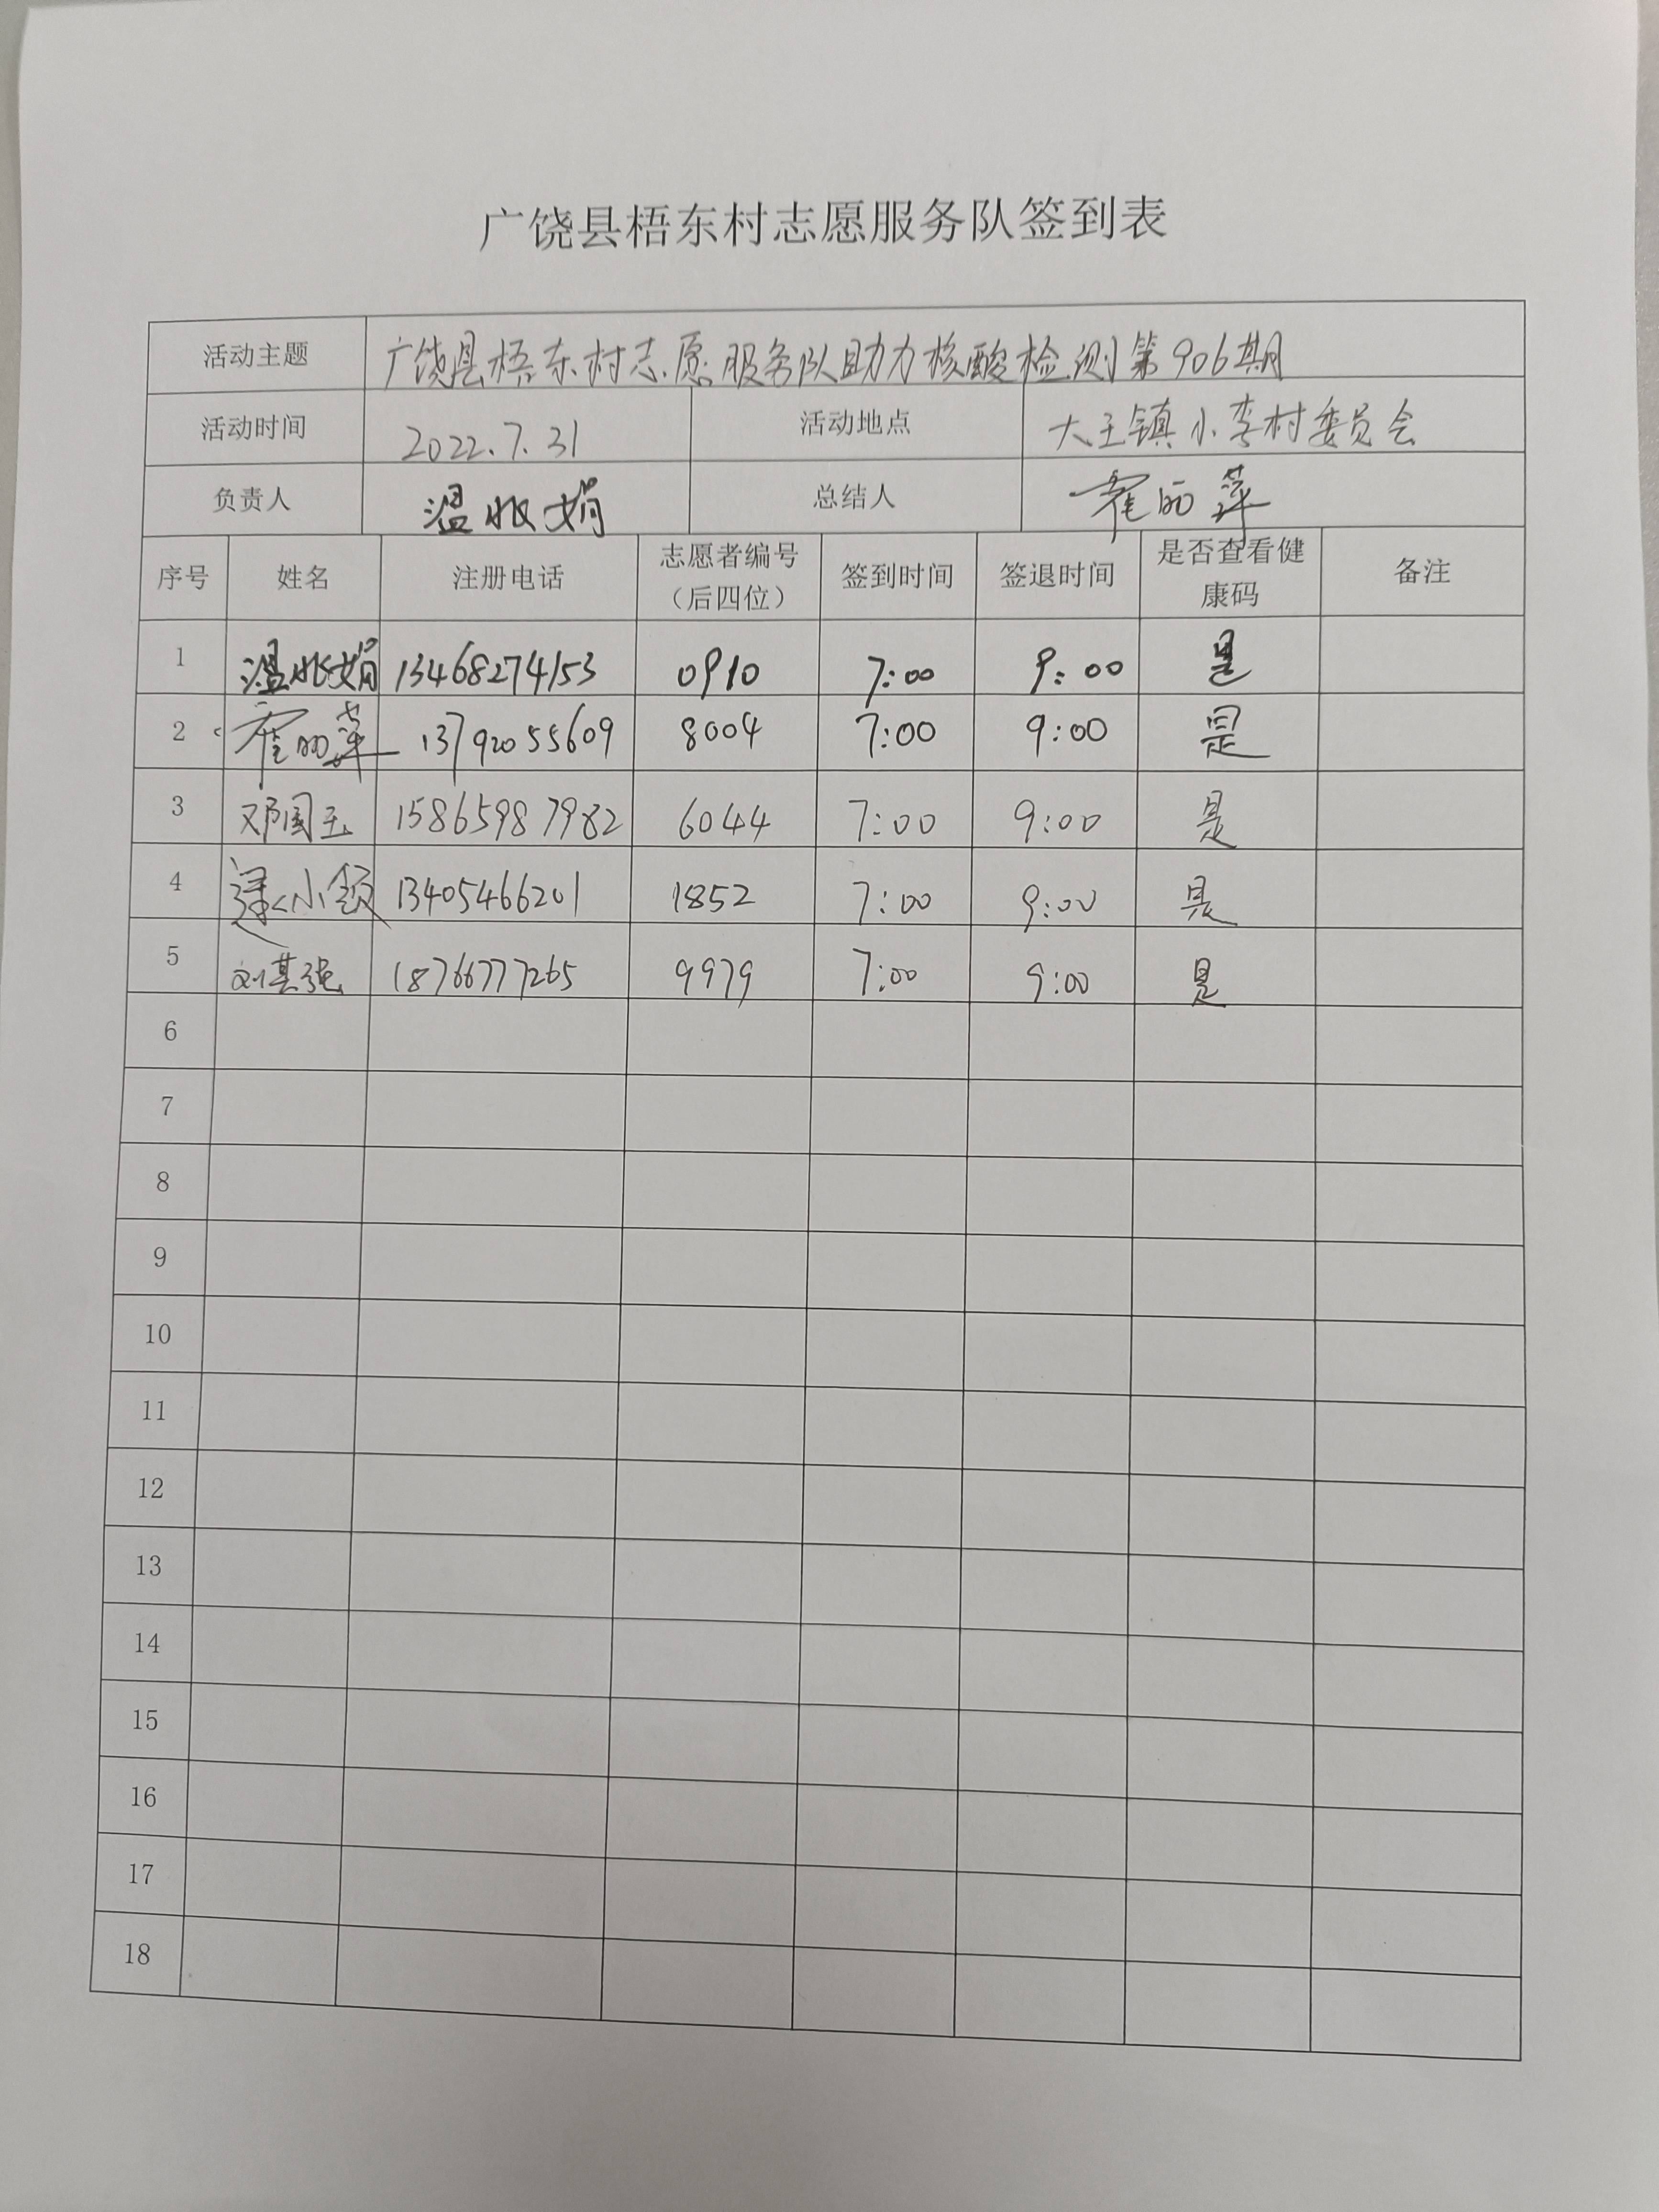 广饶县梧东村志愿服务队签到表
活动主题 广饶县梧东村志愿服务队助力核酸检测第906期
活动时间 2022.7.31 活动地点 大王镇小李村委员会
负责人 温 娟 总结人 霍丽萍
序号 姓名 注册电话 志愿者编号（后四位） 签到时间 签退时间 是否查看健康码 备注
1 温 娟 13468274153 0910 7:00 9:00 是
2 霍丽萍 13792055609 8004 7:00 9:00 是
3 邓国玉 15865987982 6044 7:00 9:00 是
4 小 13405466201 1852 7:00 9:00 是
5 刘其强 18766777265 9979 7:00 9:00 是
6
7
8
9
10
11
12
13
14
15
16
17
18